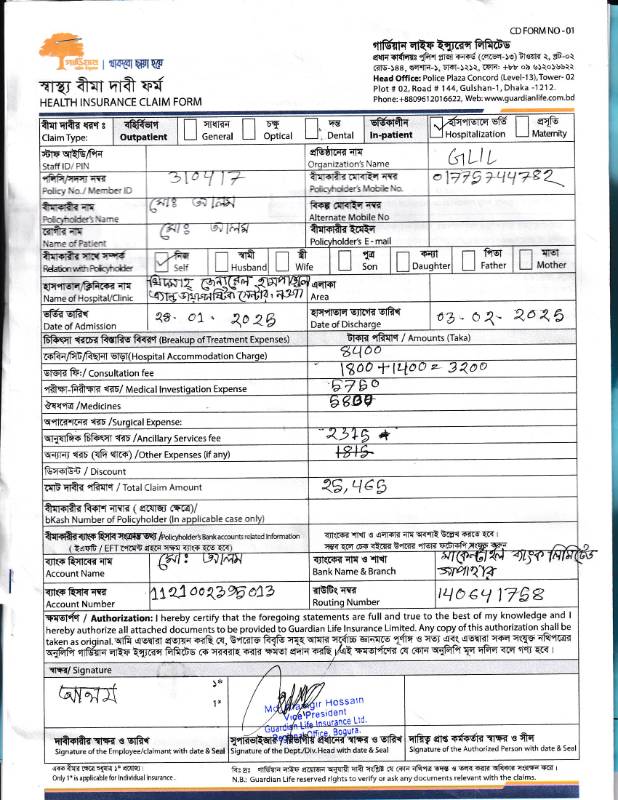 CD FORM NO - 01
গার্ডিয়ান | থাকবো ছায়া হয়ে
গার্ডিয়ান লাইফ ইন্স্যুরেন্স লিমিটেড
প্রধান কার্যালয়: পুলিশ প্লাজা কনকর্ড (লেভেল-১৩) টাওয়ার ২, প্লট-০২
রোড-১৪৪, গুলশান-১, ঢাকা-১২১২, ফোন: +৮৮ ০৯ ৬১২০১৬৬২২
Head Office: Police Plaza Concord (Level-13), Tower- 02
Plot # 02, Road # 144, Gulshan-1, Dhaka -1212.
Phone:+8809612016622, Web: www.guardianlife.com.bd
স্বাস্থ্য বীমা দাবী ফর্ম
HEALTH INSURANCE CLAIM FORM
বীমা দাবীর ধরণ ঃ বহির্বিভাগ সাধারন চক্ষু দন্ত ভর্তিকালীন হাসপাতালে ভর্তি প্রসূতি
Claim Type: Outpatient General Optical Dental In-patient Hospitalization Maternity
স্টাফ আইডি/পিন প্রতিষ্ঠানের নাম GLIL
Staff ID/ PIN Organization's Name
পলিসি/সদস্য নম্বর 310417 বীমাকারীর মোবাইল নম্বর 01775744782
Policy No./ Member ID Policyholder's Mobile No.
বীমাকারীর নাম মোঃ আলম বিকল্প মোবাইল নম্বর
Policyholder's Name Alternate Mobile No
রোগীর নাম মোঃ আলম বীমাকারীর ইমেইল
Name of Patient Policyholder's E - mail
বীমাকারীর সাথে সম্পর্ক নিজ স্বামী স্ত্রী পুত্র কন্যা পিতা মাতা
Relation with Policyholder Self Husband Wife Son Daughter Father Mother
হাসপাতাল/ক্লিনিকের নাম জেনারেল হাসপাতাল এলাকা
Name of Hospital/Clinic এন্ড ডায়াগনস্টিক সেন্টার, নওগাঁ Area
ভর্তির তারিখ 01 - 2025 হাসপাতাল ত্যাগের তারিখ 03 - 02 - 2025
Date of Admission Date of Discharge
চিকিৎসা খরচের বিস্তারিত বিবরণ (Breakup of Treatment Expenses) টাকার পরিমাণ / Amounts (Taka)
কেবিন/সিট/বিছানা ভাড়া(Hospital Accommodation Charge) 8400
ডাক্তার ফি:/ Consultation fee 1800 + 1400 = 3200
পরীক্ষা-নিরীক্ষার খরচ/ Medical Investigation Expense 5750
ঔষধপত্র /Medicines
অপারেশনের খরচ /Surgical Expense:
আনুষাঙ্গিক চিকিৎসা খরচ /Ancillary Services fee 2375
অন্যান্য খরচ (যদি থাকে) /Other Expenses (if any)
ডিসকাউন্ট / Discount
মোট দাবীর পরিমাণ / Total Claim Amount 25,465
বীমাকারীর বিকাশ নাম্বার ( প্রযোজ্য ক্ষেত্রে)/
bKash Number of Policyholder (In applicable case only)
বীমাকারীর ব্যাংক হিসাব সংক্রান্ত তথ্য /Policyholder's Bank accounts related Information ব্যাংকের শাখা ও এলাকার নাম অবশ্যই উল্লেখ করতে হবে।
( ইএফটি / EFT পেমেন্ট গ্রহনে সক্ষম ব্যাংক হতে হবে) সম্ভব হলে চেক বইয়ের উপরের পাতার ফটোকপি সংযুক্ত করুন
ব্যাংক হিসাবের নাম মোঃ আলম ব্যাংকের নাম ও শাখা মার্কেন্টাইল ব্যাংক লিমিটেড
Account Name Bank Name & Branch সাপাহার
ব্যাংক হিসাব নম্বর 1121002395013 রাউটিং নম্বর 140641758
Account Number Routing Number
ক্ষমতার্পণ / Authorization: I hereby certify that the foregoing statements are full and true to the best of my knowledge and I
hereby authorize all attached documents to be provided to Guardian Life Insurance Limited. Any copy of this authorization shall be
taken as original. আমি এতদ্বারা প্রত্যয়ন করছি যে, উপরোক্ত বিবৃতি সমূহ আমার সর্বোচ্চ জ্ঞানমতে পূর্ণাঙ্গ ও সত্য এবং এতদ্বারা সকল সংযুক্ত নথিপত্রের
অনুলিপি গার্ডিয়ান লাইফ ইন্স্যুরেন্স লিমিটেড কে সরবরাহ করার ক্ষমতা প্রদান করছি। এই ক্ষমতার্পণের যে কোন অনুলিপি মূল দলিল বলে গণ্য হবে।
স্বাক্ষর/ Signature
আলম ১*
1*
Hossain
Vice President
Guardian Life Insurance Ltd.
Office, Bogura.
দাবীকারীর স্বাক্ষর ও তারিখ সুপারভাইজার/ বিভাগীয় প্রধানের স্বাক্ষর ও তারিখ দায়িত্ব প্রাপ্ত কর্মকর্তার স্বাক্ষর ও সীল
Signature of the Employee/claimant with date & Seal Signature of the Dept./Div. Head with date & Seal Signature of the Authorized Person with date & Seal
একক বীমার ক্ষেত্রে শুধুমাত্র ১* প্রযোজ্য।
Only 1* is applicable for Individual insurance.
বিঃ দ্রঃ গার্ডিয়ান লাইফ প্রয়োজন অনুযায়ী দাবী সংশ্লিষ্ট যে কোন নথিপত্র তদন্ত ও তলব করার অধিকার সংরক্ষণ করে।
N.B.: Guardian Life reserved rights to verify or ask any documents relevant with the claims.